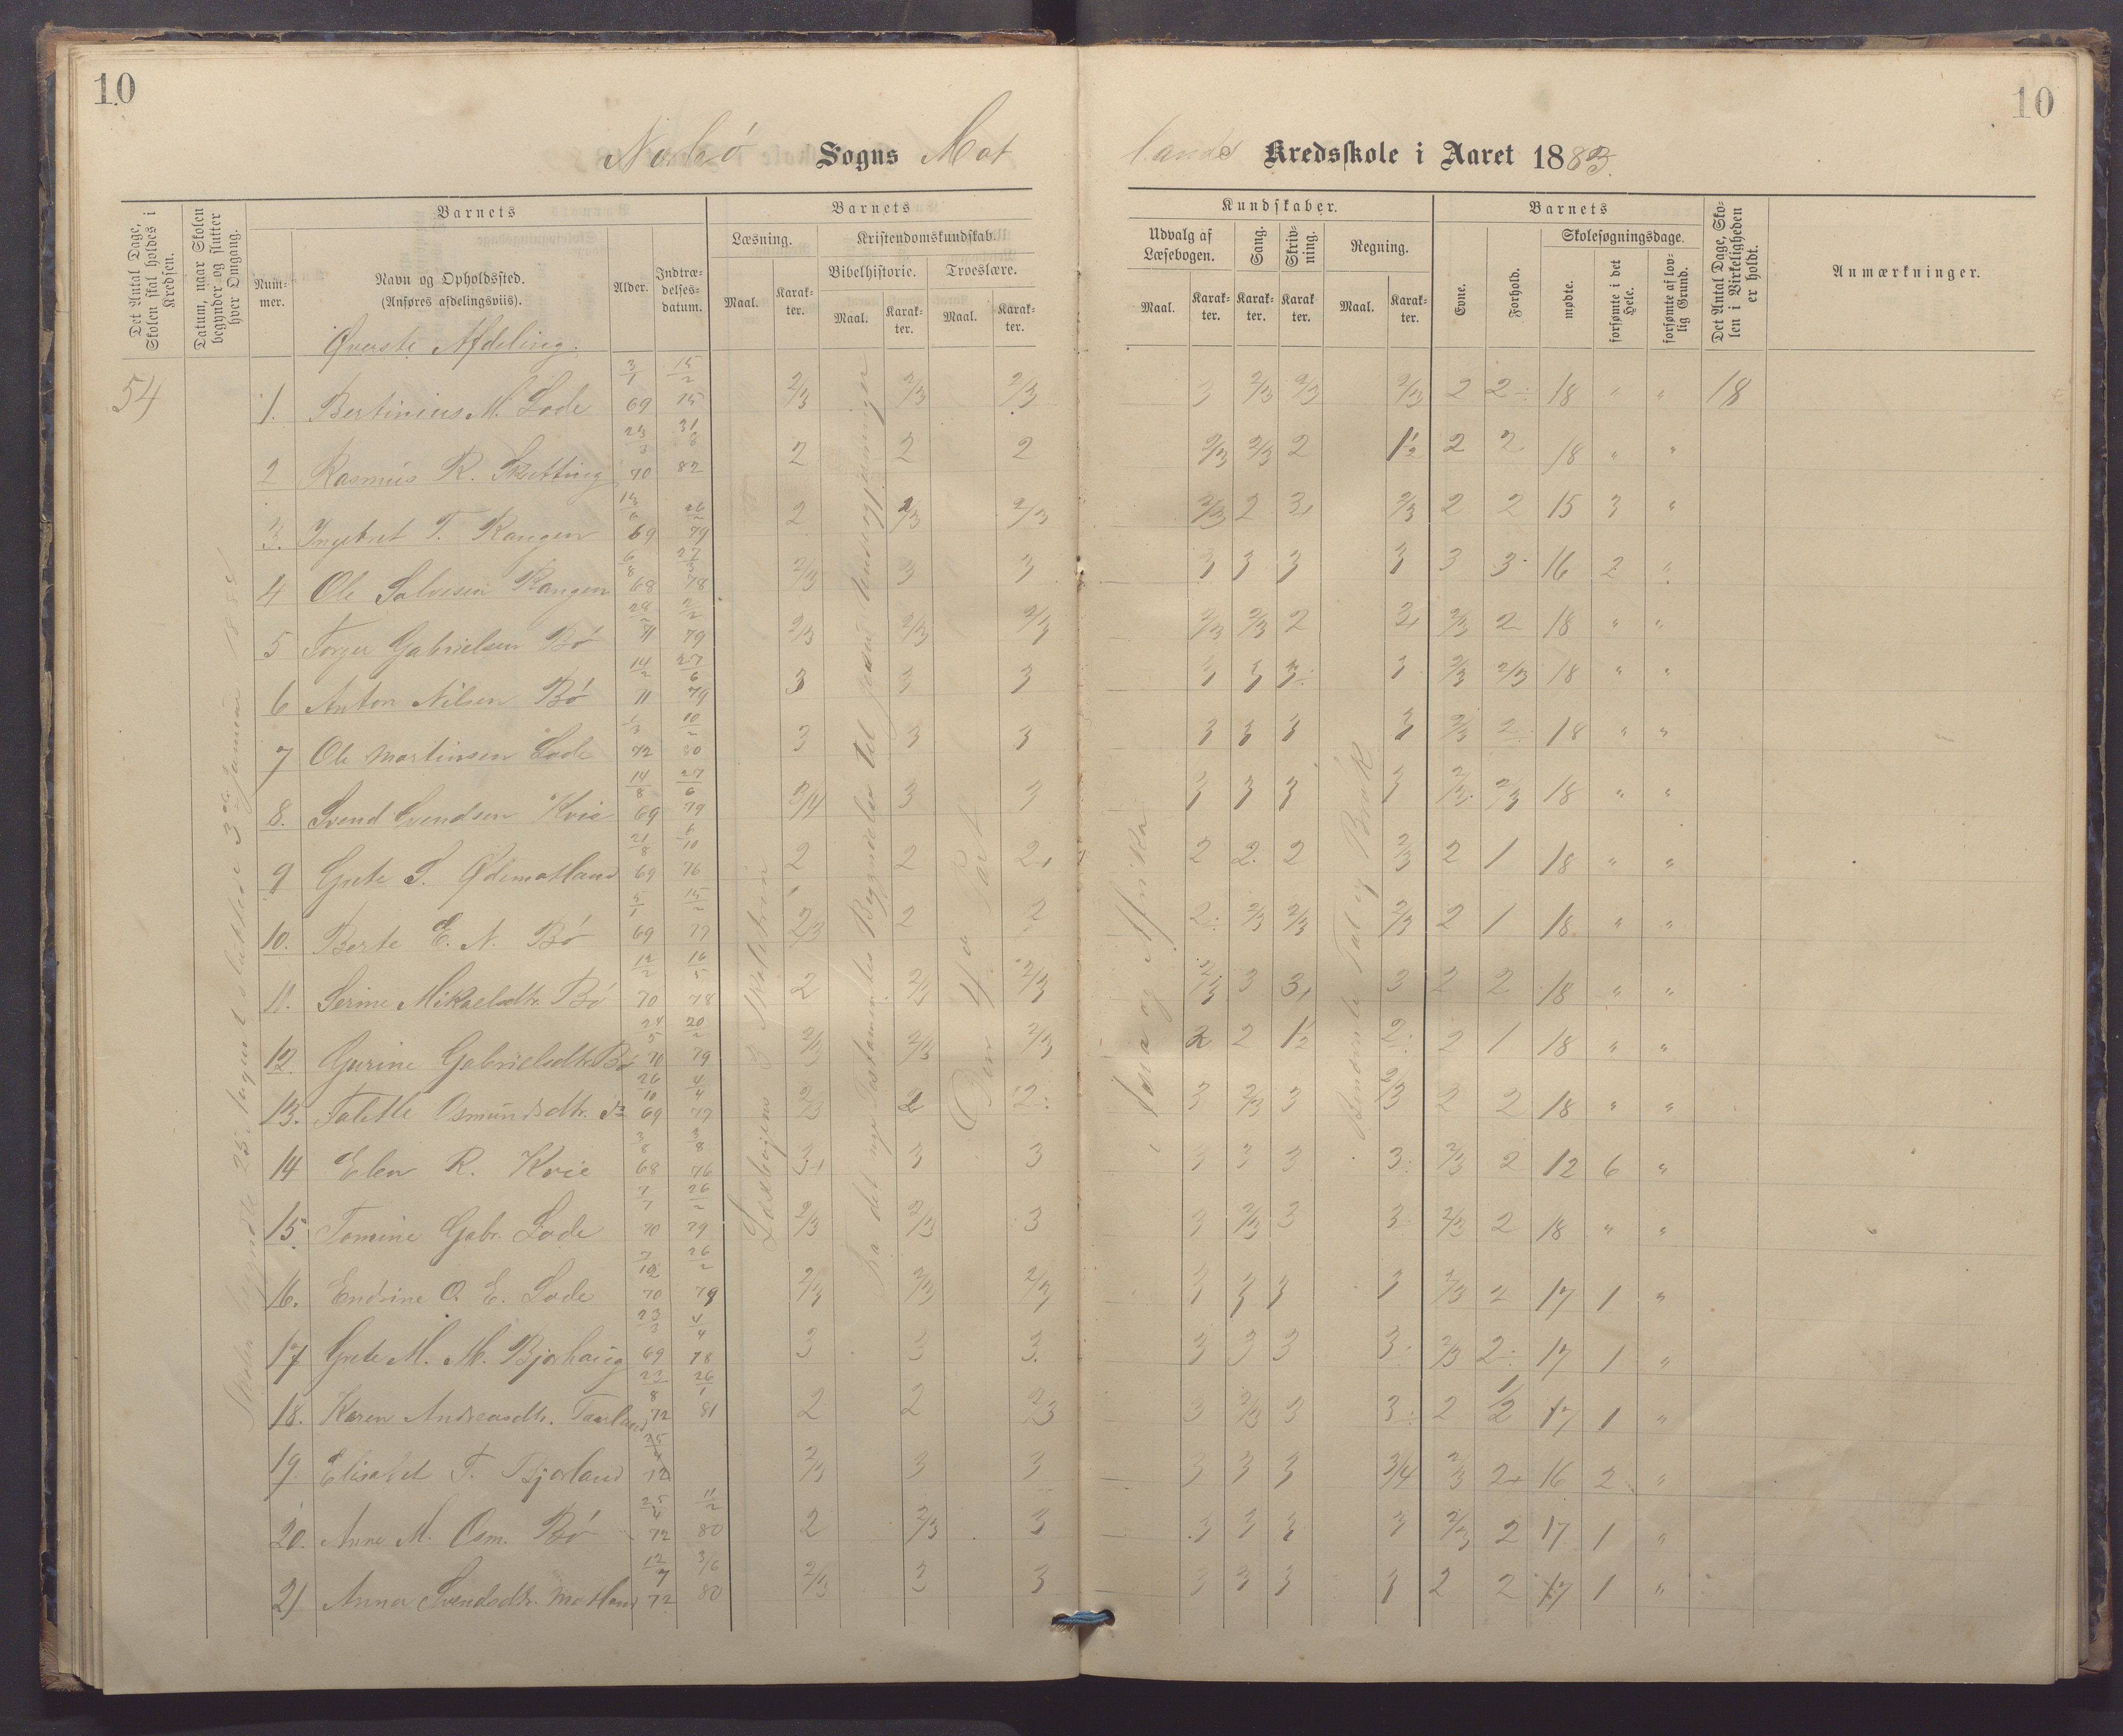 10
10
Nærbø Sogns Mat
lands Kredsskole i Aaret 1883.
Det Antal Dage, Skolen skal holdes i Kredsen.
Datum, naar Skolen begynder og slutter hver Omgang.
Barnets
Nummer.
Navn og Opholdssted.
(Anføres afdelingsviis).
Alder.
Indtrædelsesdatum.
Barnets
Læsning.
Kristendomskundskab.
Bibelhistorie.
Troeslære.
Maal.
Karakter.
Maal.
Karakter.
Maal.
Karakter.
Kundskaber.
Udvalg af Læsebogen.
Sang.
Skrivning.
Regning.
Maal.
Karakter.
Karakter.
Karakter
Maal.
Karakter.
Barnets
Evne.
Forhold.
Skolesøgningsdage.
mødte.
forsømte i det Hele.
forsømte af lovlig Grund.
Det Antal Dage, Skolen i Virkeligheden er holdt.
Anmærkninger.
Øverste Afdeling.
54
1. Bertinius M. Lode 3/1 69 15/2 75 2/3 2/3 2/3 3 2/3 2/3 2/3 2 2 18 " " 18
2 Rasmus R. Sketting 70 82 2 2 2 2/3 2/3 2 1½ 2 2 18 " "
3. Ingebret T. Rangen 69 79 2 2/3 2/3 2/3 2 3 2/3 2 2 15 3 "
4 Ole Salvesen Rangen 6/8 68 78 2/3 3 3 3 3 3 3 3 3 16 2 "
5 Torger Gabrielsen Bø 71 79 2/3 2/3 2/3 2/3 2/3 2 2/3 2 18 " "
6 Anton Nilsen Bø 14/2 71 27/6 79 3 3 3 3 3 3 3 2/3 2/3 18 " "
7 Ole Martinsen Lode 1/3 72 10/2 80 3 3 3 3 3 3 3 2/3 2 18 " "
8. Svend Svendsen Kvie 14/8 69 27/6 79 3/4 3 3 3 3 3 3 2/3 2/3 18 " "
9 Grete S. Ødemotland 21/8 69 76 2 2 2 2 2 2 2/3 2 1 18 " "
10. Berte E. N. Bø 5/1 69 15/2 77 2/3 2 2 2 2/3 2/3 2/3 2 1 18 " "
11. Serine Mikaelsdtr. Bø 12/2 70 16/5 78 2 2/3 2/3 2/3 3 3 3 2 2 18 " "
12. Gurine Gabrielsdtr. Bø 24/5 70 20/2 79 2/3 2/3 2/3 2 2 1½ 2 2 1 18 " "
13. Talette Osmundsdtr. 26/10 69 4/4 77 2/3 2 2 3 2/3 3 2/3 2 2 18 " "
14 Elen R. Kvie 3/8 68 3/8 76 3 3 3 3 3 3 3 2/3 2 12 6 "
15. Tomine Gabr. Lode 7/7 70 26/2 79 2/3 2/3 3 3 2/3 3 3 2/3 2 18 " "
16. Endrine O. E. Lode 70 26/2 79 2/3 2/3 2/3 3 3 3 3 2/3 2 17 1 "
17 Grete M. M. Bjorhaug 23/3 69 78 3 3 3 3 3 3 3 2/3 2 17 1 "
18. Karen Andreasdtr. Taarland 23/8 72 26/1 81 2 2 2/3 3 2/3 3 3 2 1/2 17 1 "
19. Elisabet T. Bjorland 72 2/3 3 3 3 3 3 3/4 2/3 2 16 2 "
20. Anne M. Osm. Bø 25/4 72 11/2 80 2 2/3 3 3 3 3 3 2/3 2 17 1 "
21 Anna Svendsdtr. Motland 12/7 72 3/6 80 2/3 3 3 3 3 3 3 2 2 17 1 "
Skolen begyndte 25. August sluttede 3die Januar
Læsebogens 3 Skoletrin
Fra det nye Testamentes Begyndelse til
Den 4de Part
Asia og Afrika
Benævnte Tal og Brøk